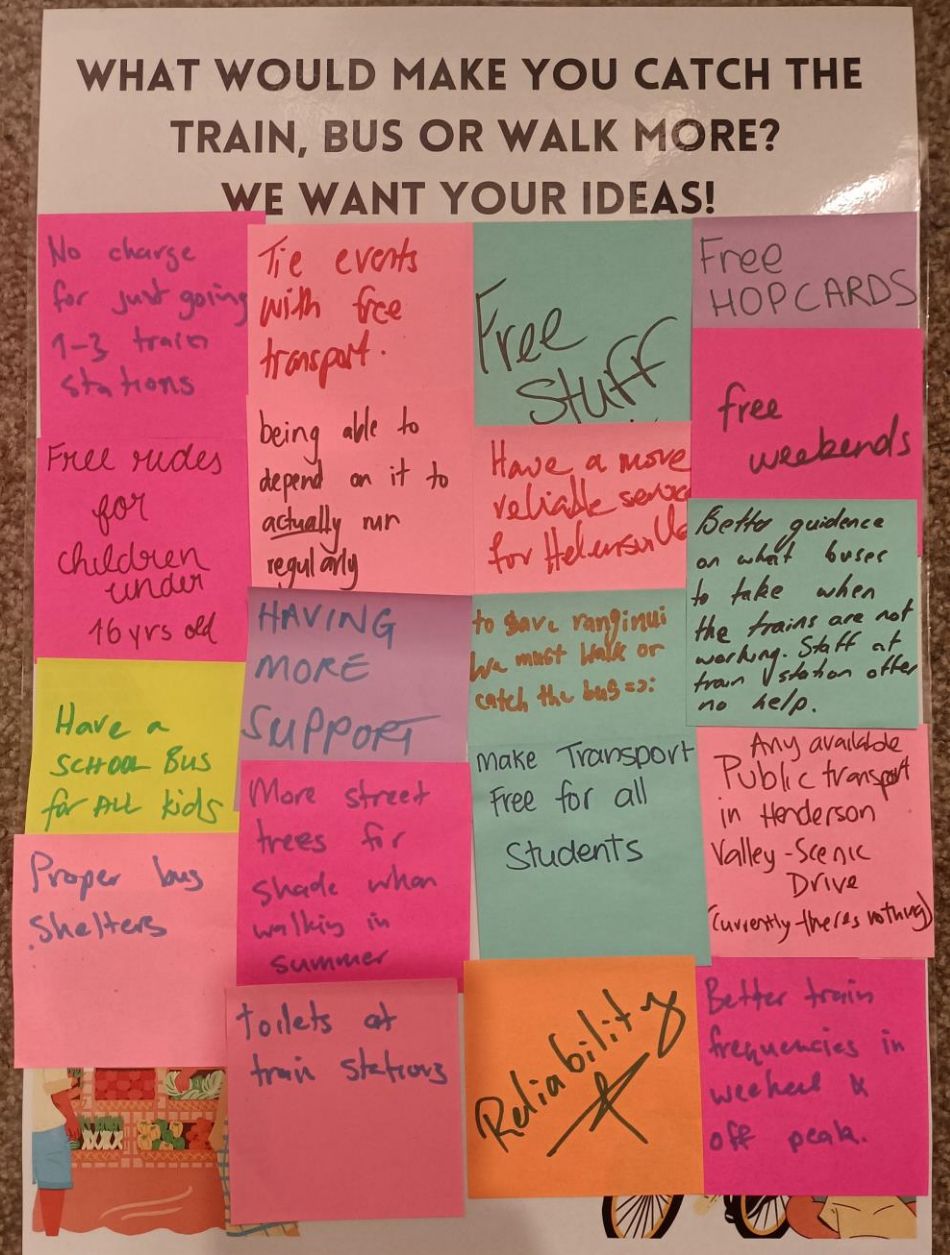 WHAT WOULD MAKE YOU CATCH THE
TRAIN, BUS OR WALK MORE?
WE WANT YOUR IDEAS!
No charge
for just going
1-3 train
stations
Free rides
for
children
under
16 yrs old
Have a
SCHOOL BUS
for ALL kids
Proper bus
shelters
Tie events
with free
transport.
being able to
depend on it to
actually run
regularly
HAVING
MORE
SUPPORT
More street
trees for
shade when
walking in
summer
toilets at
train stations
Free
Stuff
Have a more
reliable service
for Helensville
to save ranginui
we must walk or
catch the bus =):
Make Transport
Free for all
Students
Reliability
Free
HOPCARDS
free
weekends
Better guidance
on what buses
to take when
the trains are not
working. Staff at
train station offer
no help.
Any available
Public transport
in Henderson
Valley-Scenic
Drive
(currently-theres nothing)
Better train
frequencies in
weekend &
off peak.